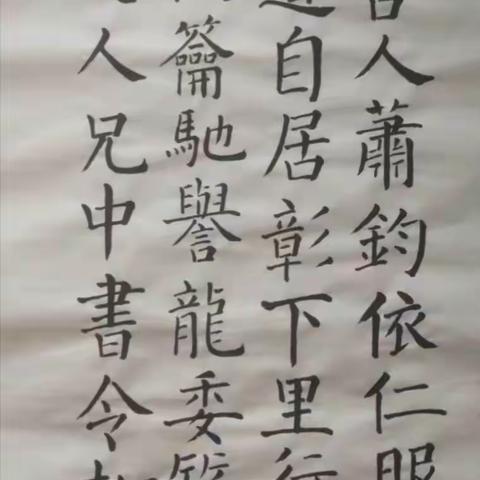 舍人蕭鈞依仁服
自居彰下里行
籥馳譽龍委
人兄中書令